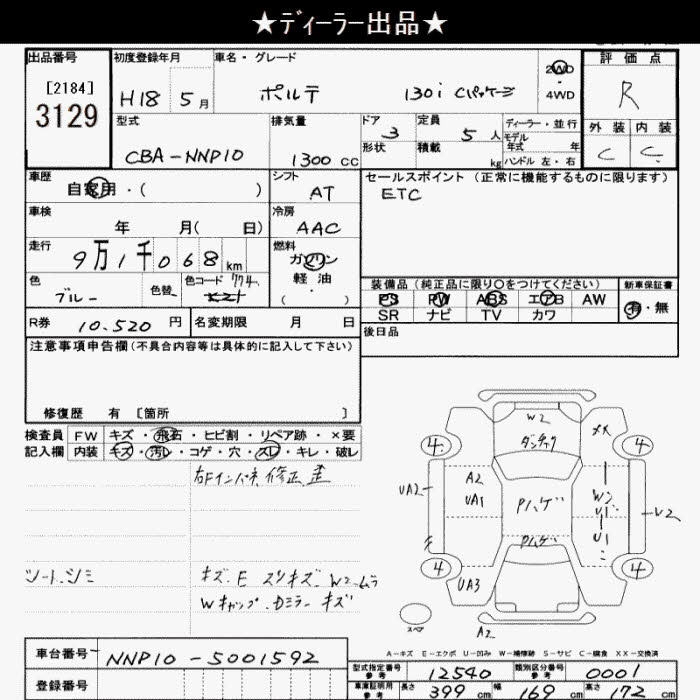 ★ディーラー出品★
出品番号 初度登録年月 車名・グレード 評価点
[2184] H18 5月 ポルテ 130i Cパッケージ 2WD ・ 4WD R
3129
型式 排気量 ドア 定員 ディーラー・並行 外装 内装
CBA-NNP10 1300cc 3 5人 モデル年式 年 C C
形状 積載 kg ハンドル 左・右
車歴 シフト セールスポイント(正常に機能するものに限ります)
自家用・( ) AT ETC
車検 冷房
年 月( 日) AAC
走行 燃料
9万1千068km ガソリン
軽油
( ・ )
色 色替 色コード 774
ブルー
装備品(純正品に限り○をつけてください) 新車保証書
PS PW ABS エアB AW 有・無
SR ナビ TV カワ
R券 10.520円 名変期限 月 日 後日品
注意事項申告欄(不具合内容等は具体的に記入して下さい)
修復歴 有 [箇所 ]
検査員 FW キズ・飛石・ヒビ割・リペア跡・×要
記入欄 内装 キズ・汚レ・コゲ・穴・スレ・キレ・破レ
右Fインパネ修正歪
シートシミ キズ.E スリキズ.W2.ムラ
Wキャップ.Dミラーキズ
W2 XX
4 ダンチァク 4
A2
UA2 UA1 Pハゲ W2 U1 U2
U1
Pハゲ
4 4
UA3
スペア A2
A-キズ E-エクボ U-凹み W-補修跡 S-サビ C-腐食 XX-交換済
車台番号 NNP10-5001592
登録番号
型式指定番号 参考 12540 類別区分番号 参考 0001
車庫証明用 参考 長さ 399cm 幅 169cm 高さ 172cm